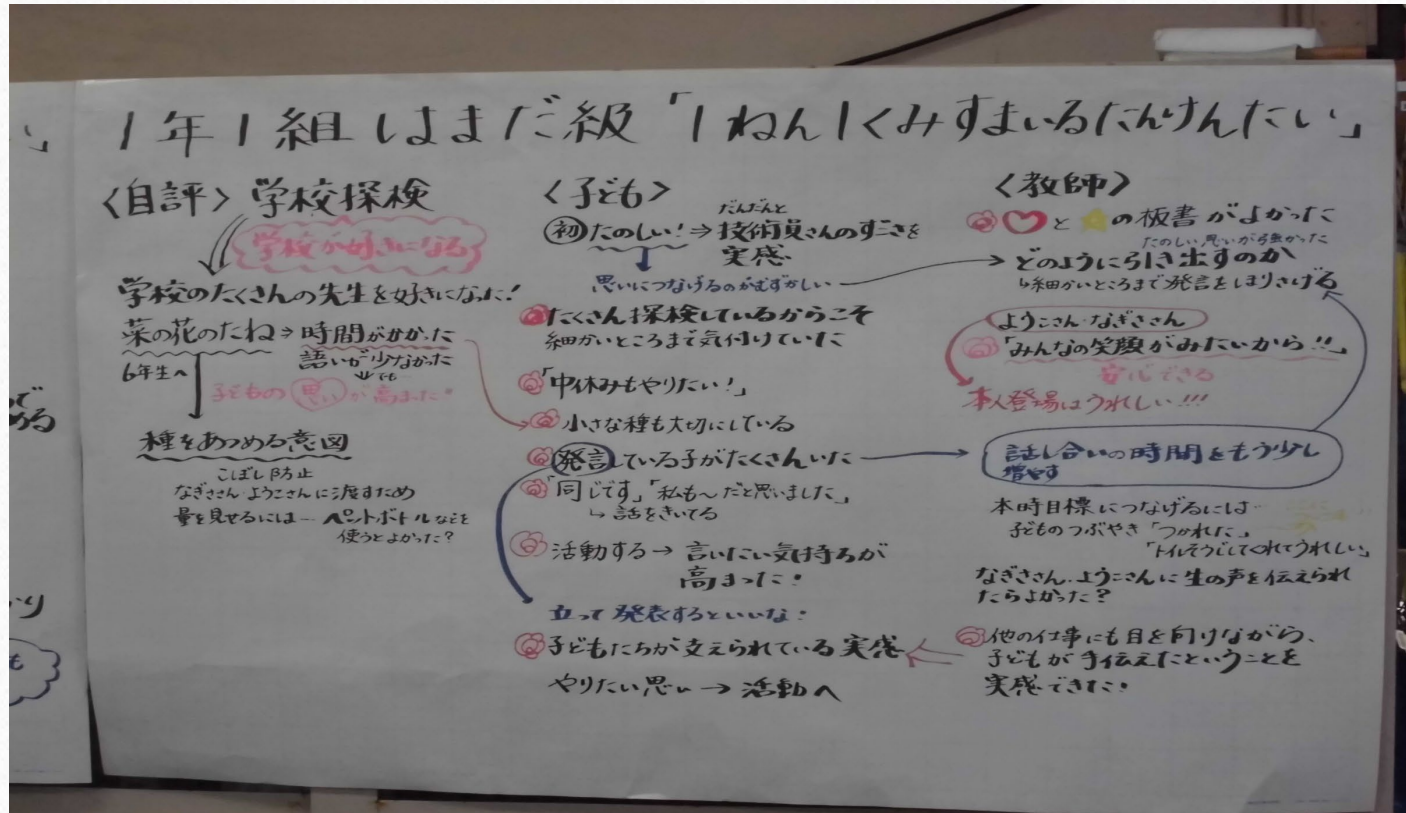 1年1組 はまだ級「1ねん1くみすまいるたんけんたい」
〈自評〉学校探検
学校が好きになる
学校のたくさんの先生を好きになった!
菜の花のたね→時間がかかった
語いが少なかった
でも
6年生へ
子どもの思いが高まった!
種をあつめる意図
こぼし防止
なぎささん・ようこさんに渡すため
量を見せるには…ペットボトルなどを
使うとよかった?
〈子ども〉
だんだんと
初 たのしい!⇒技術員さんのすごさを
実感
思いにつなげるのがむずかしい
たくさん探検しているからこそ
細かいところまで気付けていた
「中休みもやりたい!」
小さな種も大切にしている
発言している子がたくさんいた
「同じです」「私も〜だと思いました」
↳話をきいてる
活動する→言いたい気持ちが
高まった!
立って発表するといいな!
子どもたちが支えられている実感
やりたい思い→活動へ
〈教師〉
♡と★の板書がよかった
たのしい思いが強かった
どのように引き出すのか
↳細かいところまで発言をほりさげる
ようこさん・なぎささん
「みんなの笑顔がみたいから!!」
安心できる
本人登場はうれしい!!!
話し合いの時間をもう少し
増やす
本時目標につなげるには…
子どものつぶやき「つかれた」
「トイレそうじしてくれてうれしい」
なぎささん、ようこさんに生の声を伝えられ
たらよかった?
他の仕事にも目を向けながら、
子どもが手伝えたということを
実感できた!